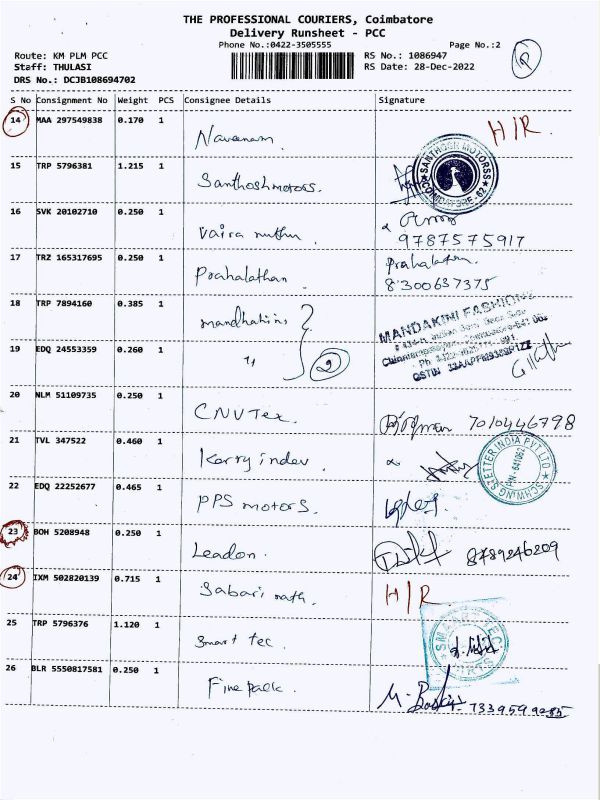 THE PROFESSIONAL COURIERS, Coimbatore
Delivery Runsheet - PCC
Phone No.:0422-3505555
Page No.:2
P
Route: KM PLM PCC
RS No.: 1086947
Staff: THULASI
RS Date: 28-Dec-2022
DRS No.: DCJB108694702
S No Consignment No Weight PCS Consignee Details Signature
14 MAA 297549838 0.170 1 Naveenam. H/R.
15 TRP 5796381 1.215 1 Santhoshmotors. SANTHOSH MOTORSS COIMBATORE-62
16 SVK 20102710 0.250 1 Vaira muthu.
9787575917
17 TRZ 165317695 0.250 1 Prahalathan. Prahalathan.
8300637375
18 TRP 7894160 0.385 1 mandhakini MANDAKINI FASHIONS
19 EDQ 24553359 0.260 1 " 2
20 NLM 51109735 0.250 1 CNVTex. 7010446798
21 TVL 347522 0.460 1 Karryindev. SCHWING STETTER INDIA PVT LTD PIN - 641062
22 EDQ 22252677 0.465 1 PPS motors.
23 BOH 5208948 0.250 1 Leadon. 8789246209
24 IXM 502820139 0.715 1 Sabari nath. H/R
25 TRP 5796376 1.120 1 Smart tec. SMART TEC
26 BLR 5550817581 0.250 1 Fine pack. M. 7339599285